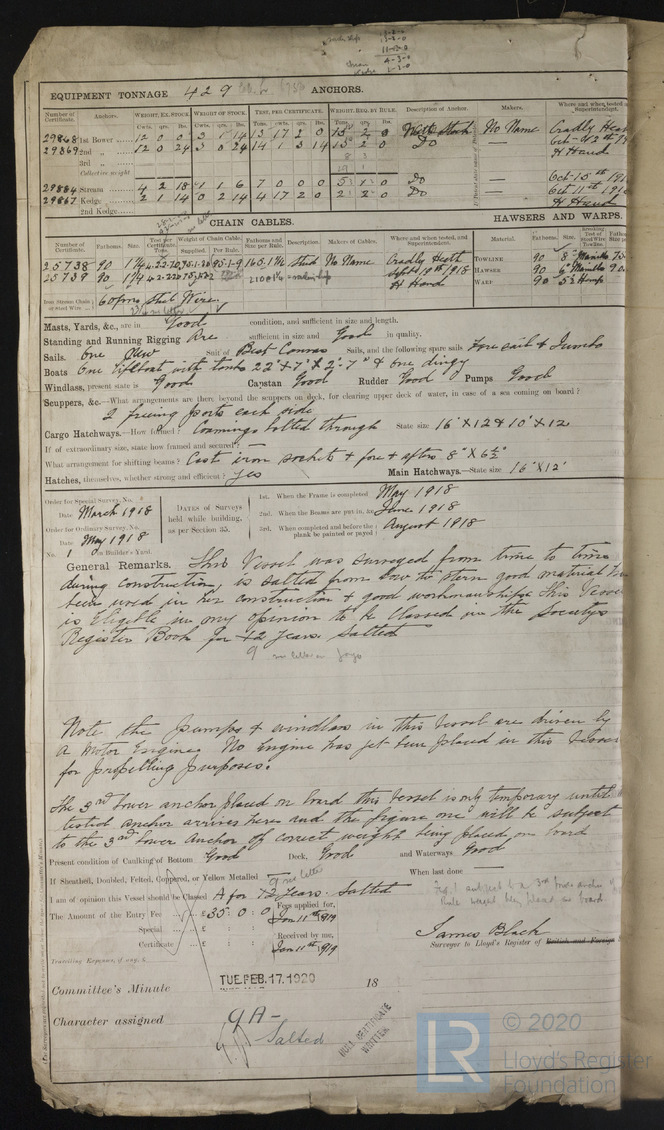 EQUIPMENT TONNAGE 429 ANCHORS.
Number of Certificate. Anchors. WEIGHT, EX. STOCK. WEIGHT OF STOCK. TEST, PER CERTIFICATE. WEIGHT, REQ. BY RULE. Description of Anchor. Makers. Where and when tested
Superintendent.
Cwts. qrs. lbs. Cwts. qrs. lbs. Tons. cwts. qrs. lbs.
29868 1st Bower 3 1 14 13 17 2 0 No Name Cradley Heath
29869 2nd 12 0 24 3 0 24 14 1 3 14 Do
3rd H Hand
Collective weight
29884 Stream 4 2 18 1 1 6 7 0 0 0 5 1 0 Do Oct 15th 191
29867 Kedge 2 1 14 0 2 14 4 17 2 0 2 2 0 Do Oct 11th 191
2nd Kedge H Hand
CHAIN CABLES. HAWSERS AND WARPS.
Number of Certificate. Fathoms. Size. Test per Certificate. Tons. Weight of Chain Cable. Supplied. Per Rule. Fathoms and Size per Rule. Description. Makers of Cables. Where and when tested, and Superintendent. Material. Fathoms. Size. Breaking Test of Steel Wire Towline.
25738 90 1¼ 95-1-9 165-1¼ Stud No Name Cradley Heath TOWLINE 90 8" Manilla 75
25739 90 1¼ 210 Sept 19th 1918 HAWSER 90 6" Manilla 90
H Hand WARP 90 5½ Hemp
60 fms Steel Wire
Masts, Yards, &c., are in Good condition, and sufficient in size and length.
Standing and Running Rigging Are sufficient in size and Good in quality.
Sails. One New Suit of Best Canvas Sails, and the following spare sails Fore sail & Jumbo
Boats One lifeboat with tanks 22' x 7' x 2'-7" & One dingy
Windlass, present state is Good Capstan Good Rudder Good Pumps Good
Scuppers, &c.—What arrangements are there beyond the scuppers on deck, for clearing upper deck of water, in case of a sea coming on board?
2 freeing ports each side
Cargo Hatchways.—How framed? Coamings bolted through State size 16' x 12 & 10' x 12
If of extraordinary size, state how framed and secured?
What arrangement for shifting beams? Cast iron sockets & fore & afters 8" x 6½"
Hatches, themselves, whether strong and efficient? Yes Main Hatchways.—State size 16' x 12'
Order for Special Survey, No.
Date March 1918
Order for Ordinary Survey, No.
Date May 1918
No. 1 in Builder's Yard.
DATES of Surveys held while building, as per Section 35.
1st. When the Frame is completed May 1918
2nd. When the Beams are put in, &c. June 1918
3rd. When completed and before the plank be painted or payed August 1918
General Remarks. This Vessel was surveyed from time to time
during construction, is salted from bow to stern good material
been used in her construction & good workmanship. This Vessel
is Eligible in my opinion to be Classed in the Society's
Register Book for 12 Years. Salted
9
Note the pumps & windlass in this vessel are driven by
a motor Engine. No Engine has yet been placed in this Vessel
for propelling purposes.
The 3rd bower anchor placed on board this Vessel is only temporary until
tested anchor arrives here and the figure one will be subject
to the 3rd bower anchor of correct weight being placed on board
Present condition of Caulking of Bottom Good Deck, Good and Waterways Good
If Sheathed, Doubled, Felted, Coppered, or Yellow Metalled When last done
I am of opinion this Vessel should be Classed A for 12 Years. Salted
The Amount of the Entry Fee £35 : 0 : 0 Fees applied for,
Jan 11th 1919
Special £ : : Received by me,
Certificate £ : : Jan 11th 1919
Travelling Expenses, if any, £
James Black
Surveyor to Lloyd's Register of British and Foreign
Committee's Minute TUE. FEB. 17. 1920 18
Character assigned 9A-
Salted
CERTIFICATE
WRITTEN
LR © 2020
Lloyd's Register
Foundation